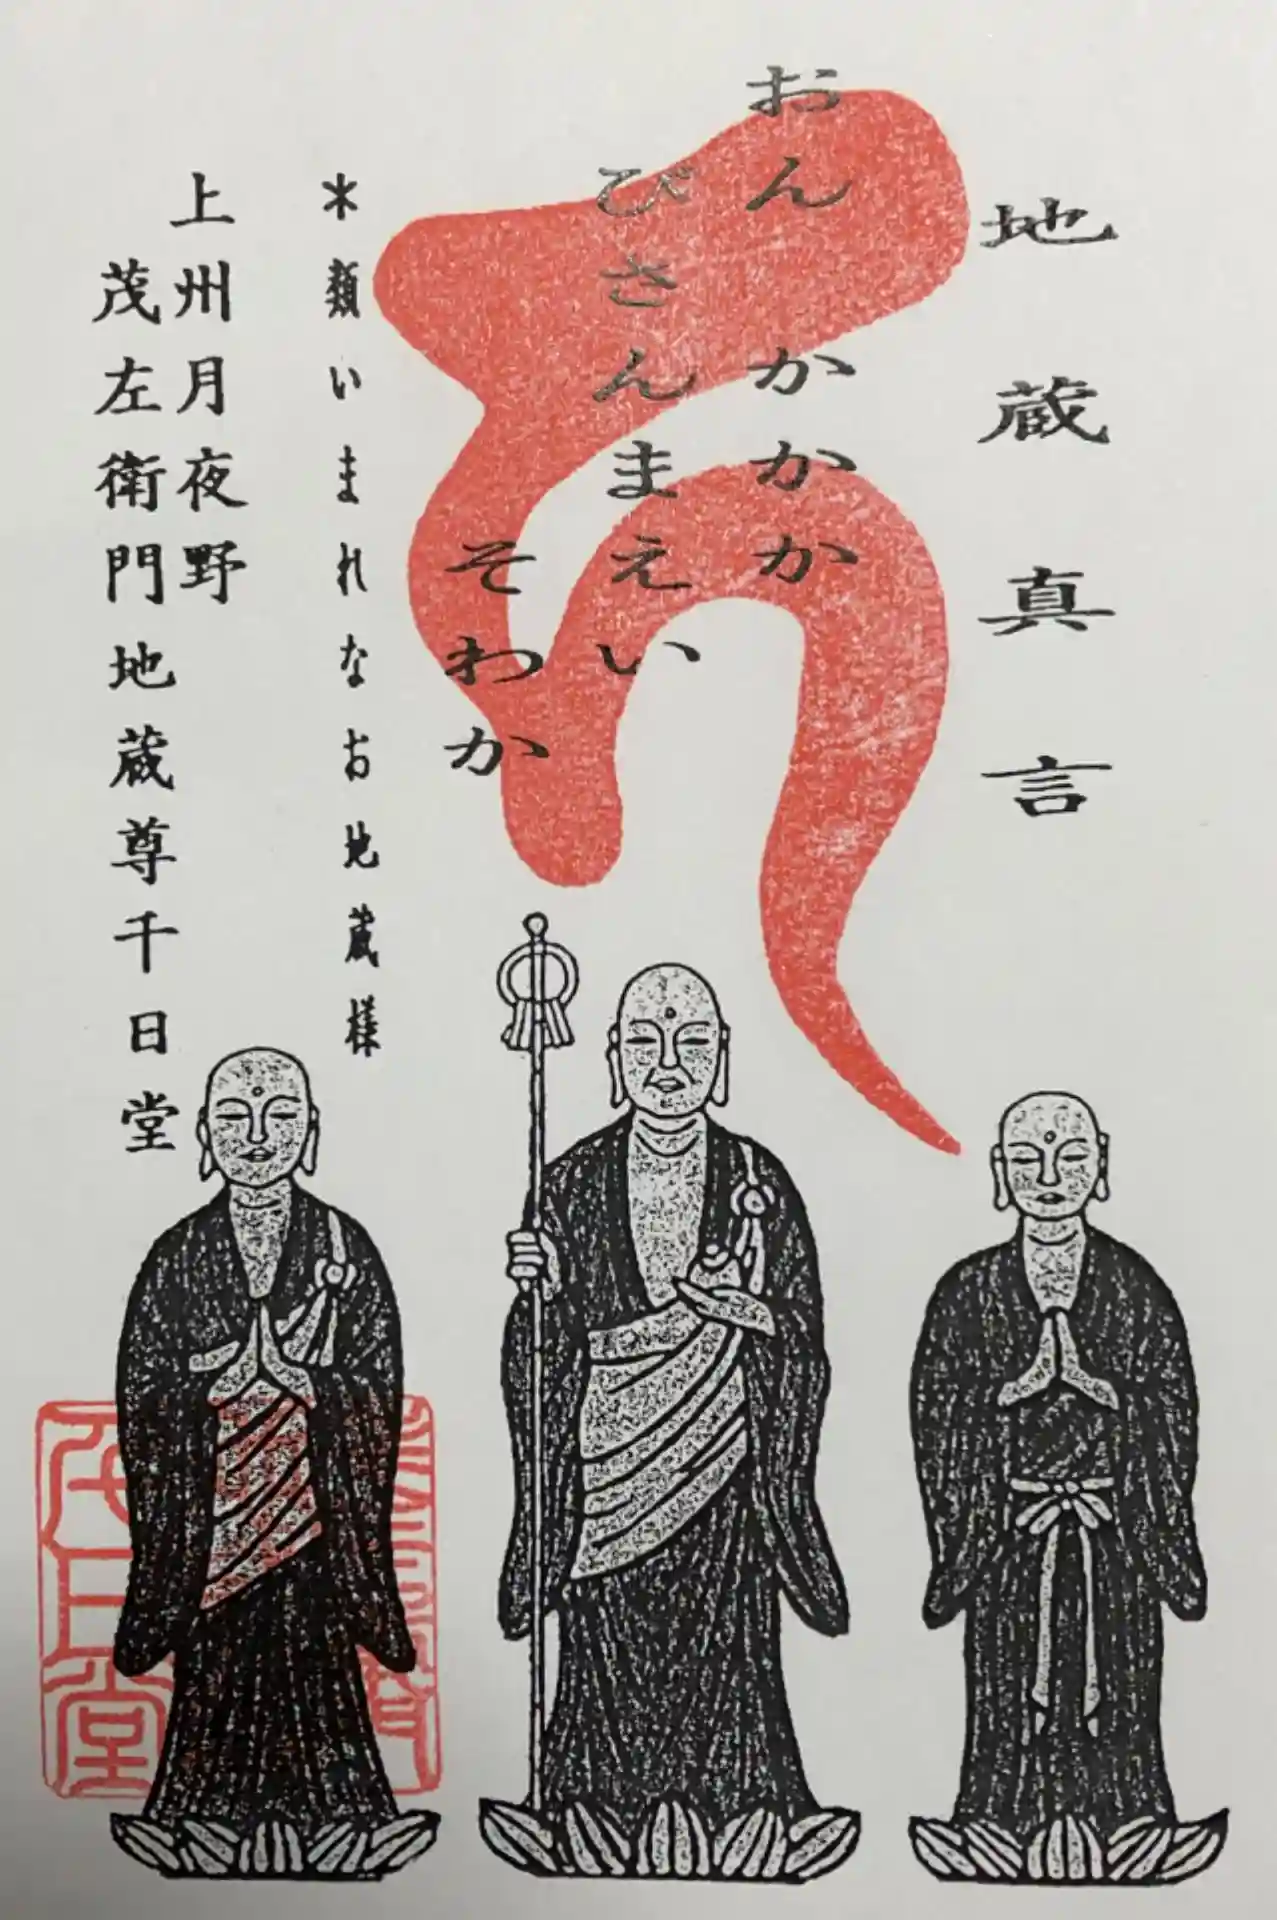 地蔵真言
おん かかか
びさんまえい
そわか
*類いまれなお地蔵様
上州月夜野
茂左衛門地蔵尊千日堂